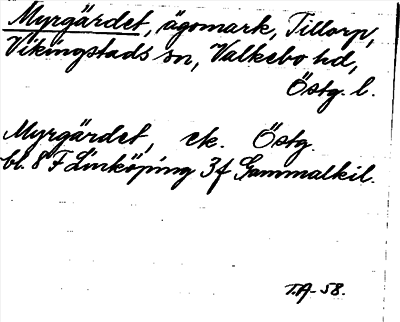 Myrgärdet, ägomark, Tillorp,
Vikingstads sn, Valkebo hd,
Östg. l.
Myrgärdet, ek. Östg.
bl. 8 F Linköping 3f Gammalkil.
T.A-58.